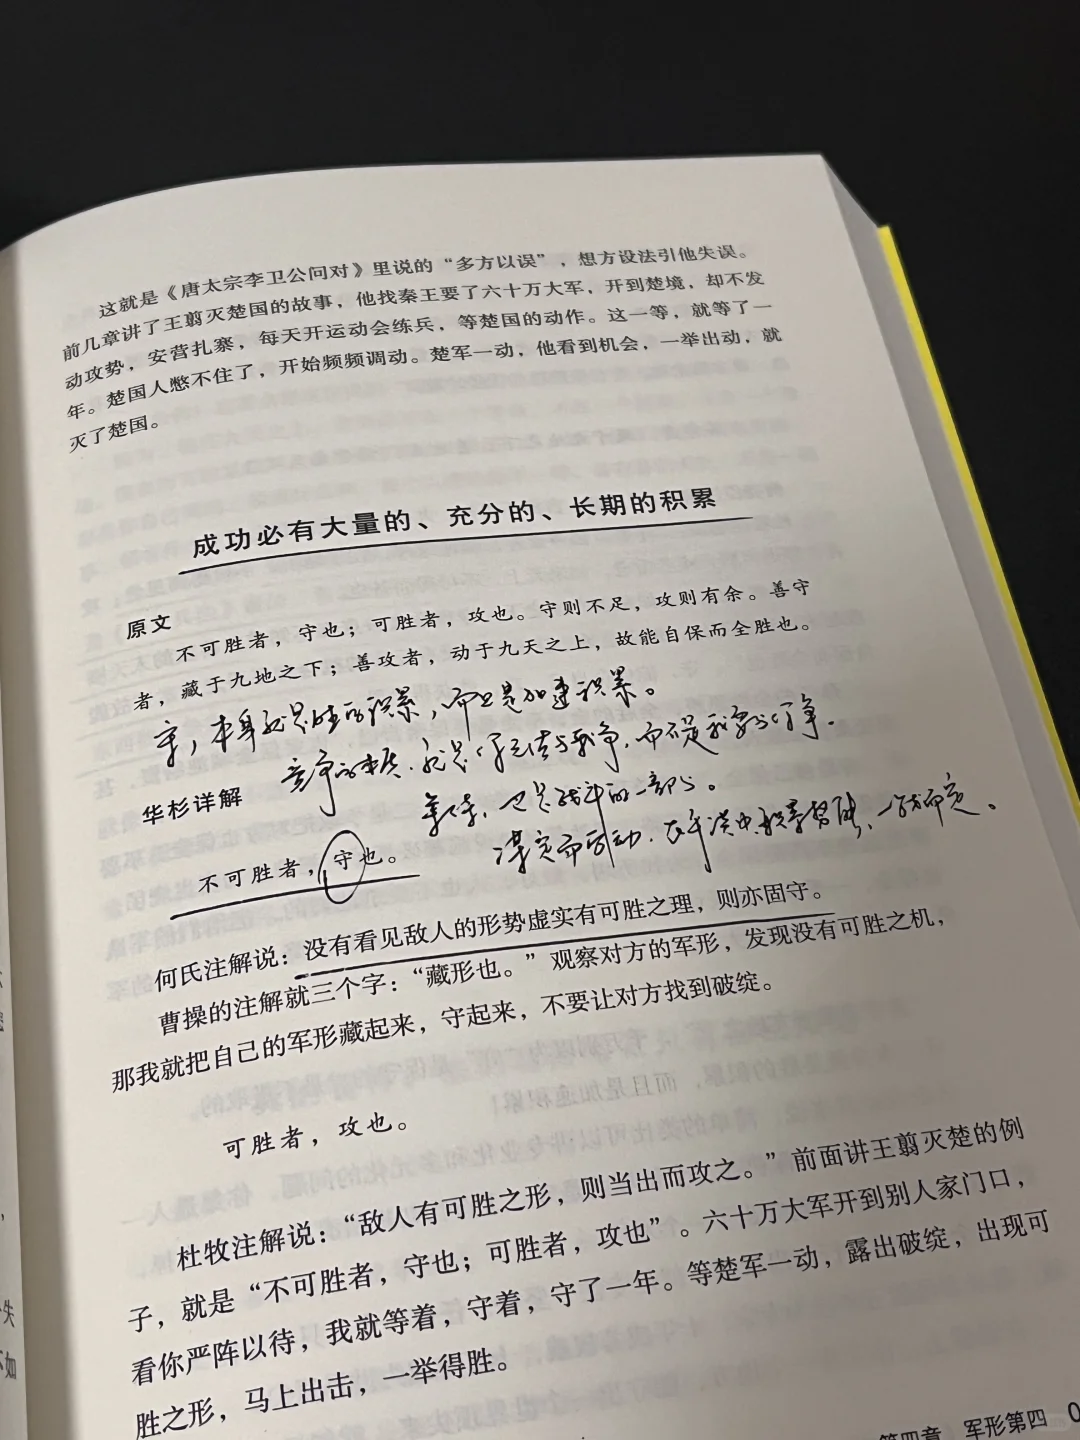 这就是《唐太宗李卫公问对》里说的“多方以误”，想方设法引他失误。
前几章讲了王翦灭楚国的故事，他找秦王要了六十万大军，开到楚境，却不发
动攻势，安营扎寨，每天开运动会练兵，等楚国的动作。这一等，就等了一
年。楚国人憋不住了，开始频频调动。楚军一动，他看到机会，一举出动，就
灭了楚国。
成功必有大量的、充分的、长期的积累
原文
不可胜者，守也；可胜者，攻也。守则不足，攻则有余。善守
者，藏于九地之下；善攻者，动于九天之上，故能自保而全胜也。
守，本身就是时的积累，而且是加速积累。
竞争的本质，就是
华杉详解
等待，也是战斗的一部分。
谋定而后动，一战而定。
不可胜者，守也。
何氏注解说：没有看见敌人的形势虚实有可胜之理，则亦固守。
曹操的注解就三个字：“藏形也。”观察对方的军形，发现没有可胜之机，
那我就把自己的军形藏起来，守起来，不要让对方找到破绽。
可胜者，攻也。
杜牧注解说：“敌人有可胜之形，则当出而攻之。”前面讲王翦灭楚的例
子，就是“不可胜者，守也；可胜者，攻也”。六十万大军开到别人家门口，
看你严阵以待，我就等着，守着，守了一年。等楚军一动，露出破绽，出现可
胜之形，马上出击，一举得胜。
第四章 军形第四 0
失
不如